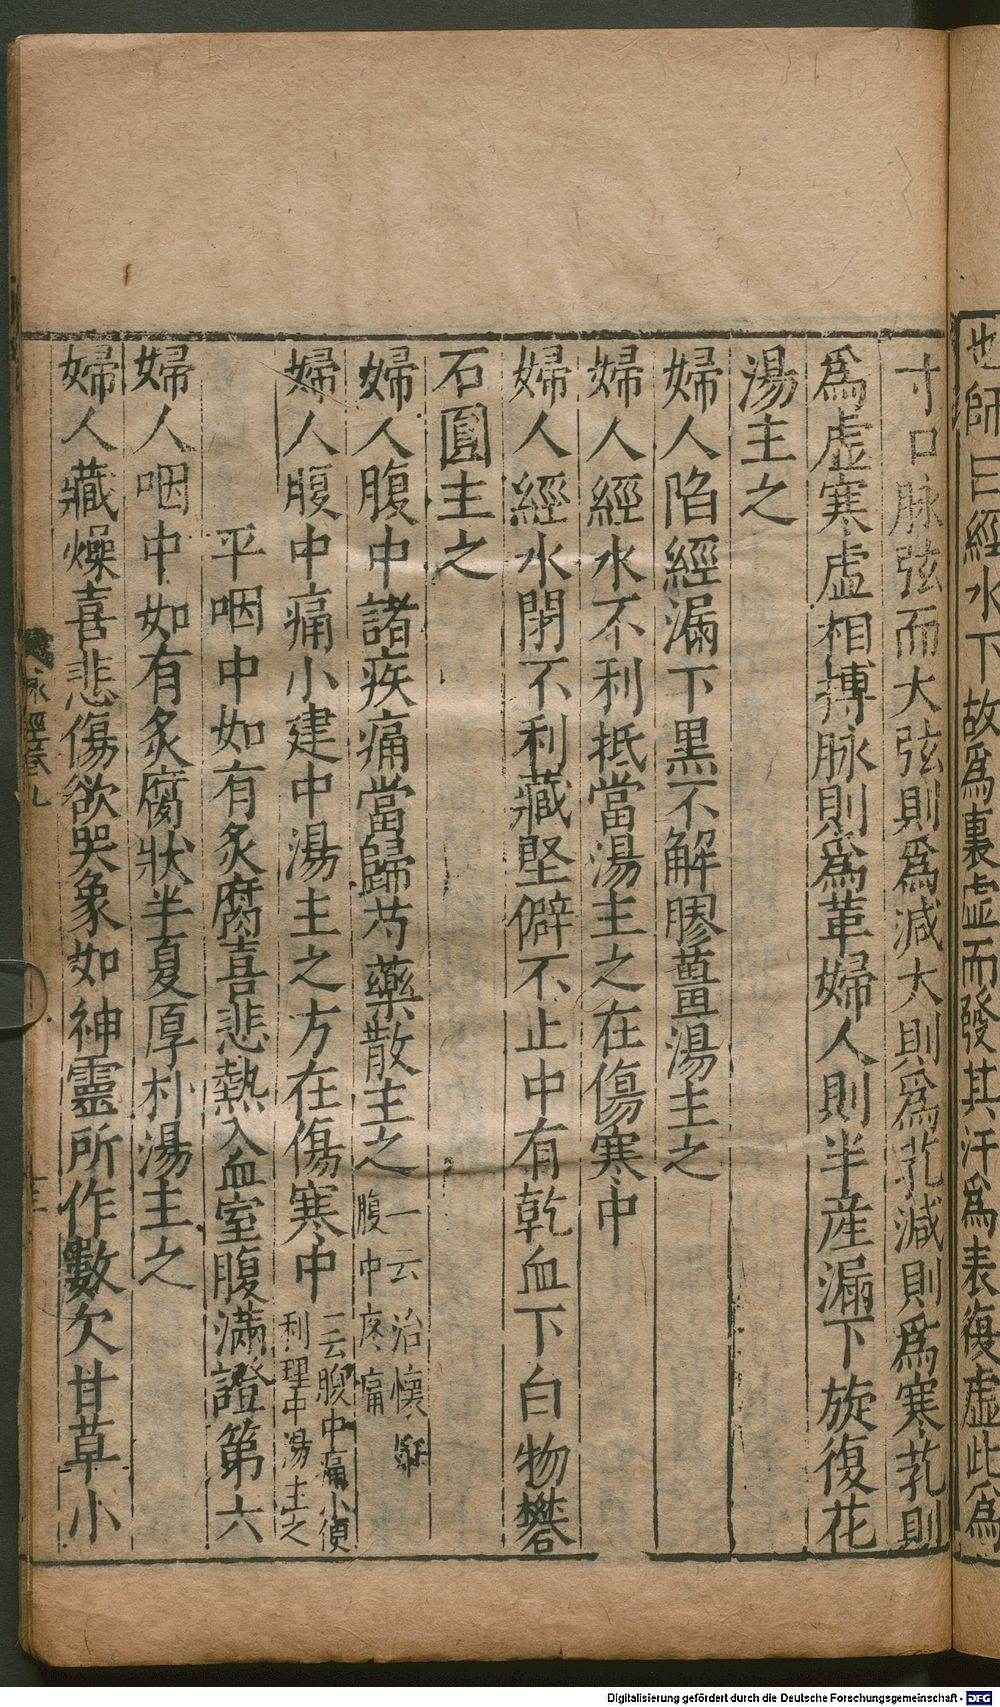 也師曰經水下故爲裏虛而發其汗爲表復虛此爲
寸口脉弦而大弦則爲減大則爲芤減則爲寒芤則
爲虛寒虛相搏脉則爲革婦人則半產漏下旋復花
湯主之
婦人陷經漏下黑不解膠薑湯主之
婦人經水不利抵當湯主之在傷寒中
婦人經水閉不利藏堅僻不止中有乾血下白物礬
石圓主之
婦人腹中諸疾痛當歸芍藥散主之一云治懷
腹中疼痛
婦人腹中痛小建中湯主之方在傷寒中一云腹中痛小便
利理中湯主之
平咽中如有炙腐喜悲熱入血室腹滿證第六
婦人咽中如有炙腐狀半夏厚朴湯主之
婦人藏燥喜悲傷欲哭象如神靈所作數欠甘草小
脉經卷九
十三
Digitalisierung gefördert durch die Deutsche Forschungsgemeinschaft - DFG